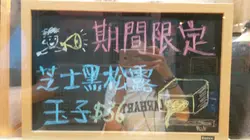 期間限定
芝士黑松露
玉子$36